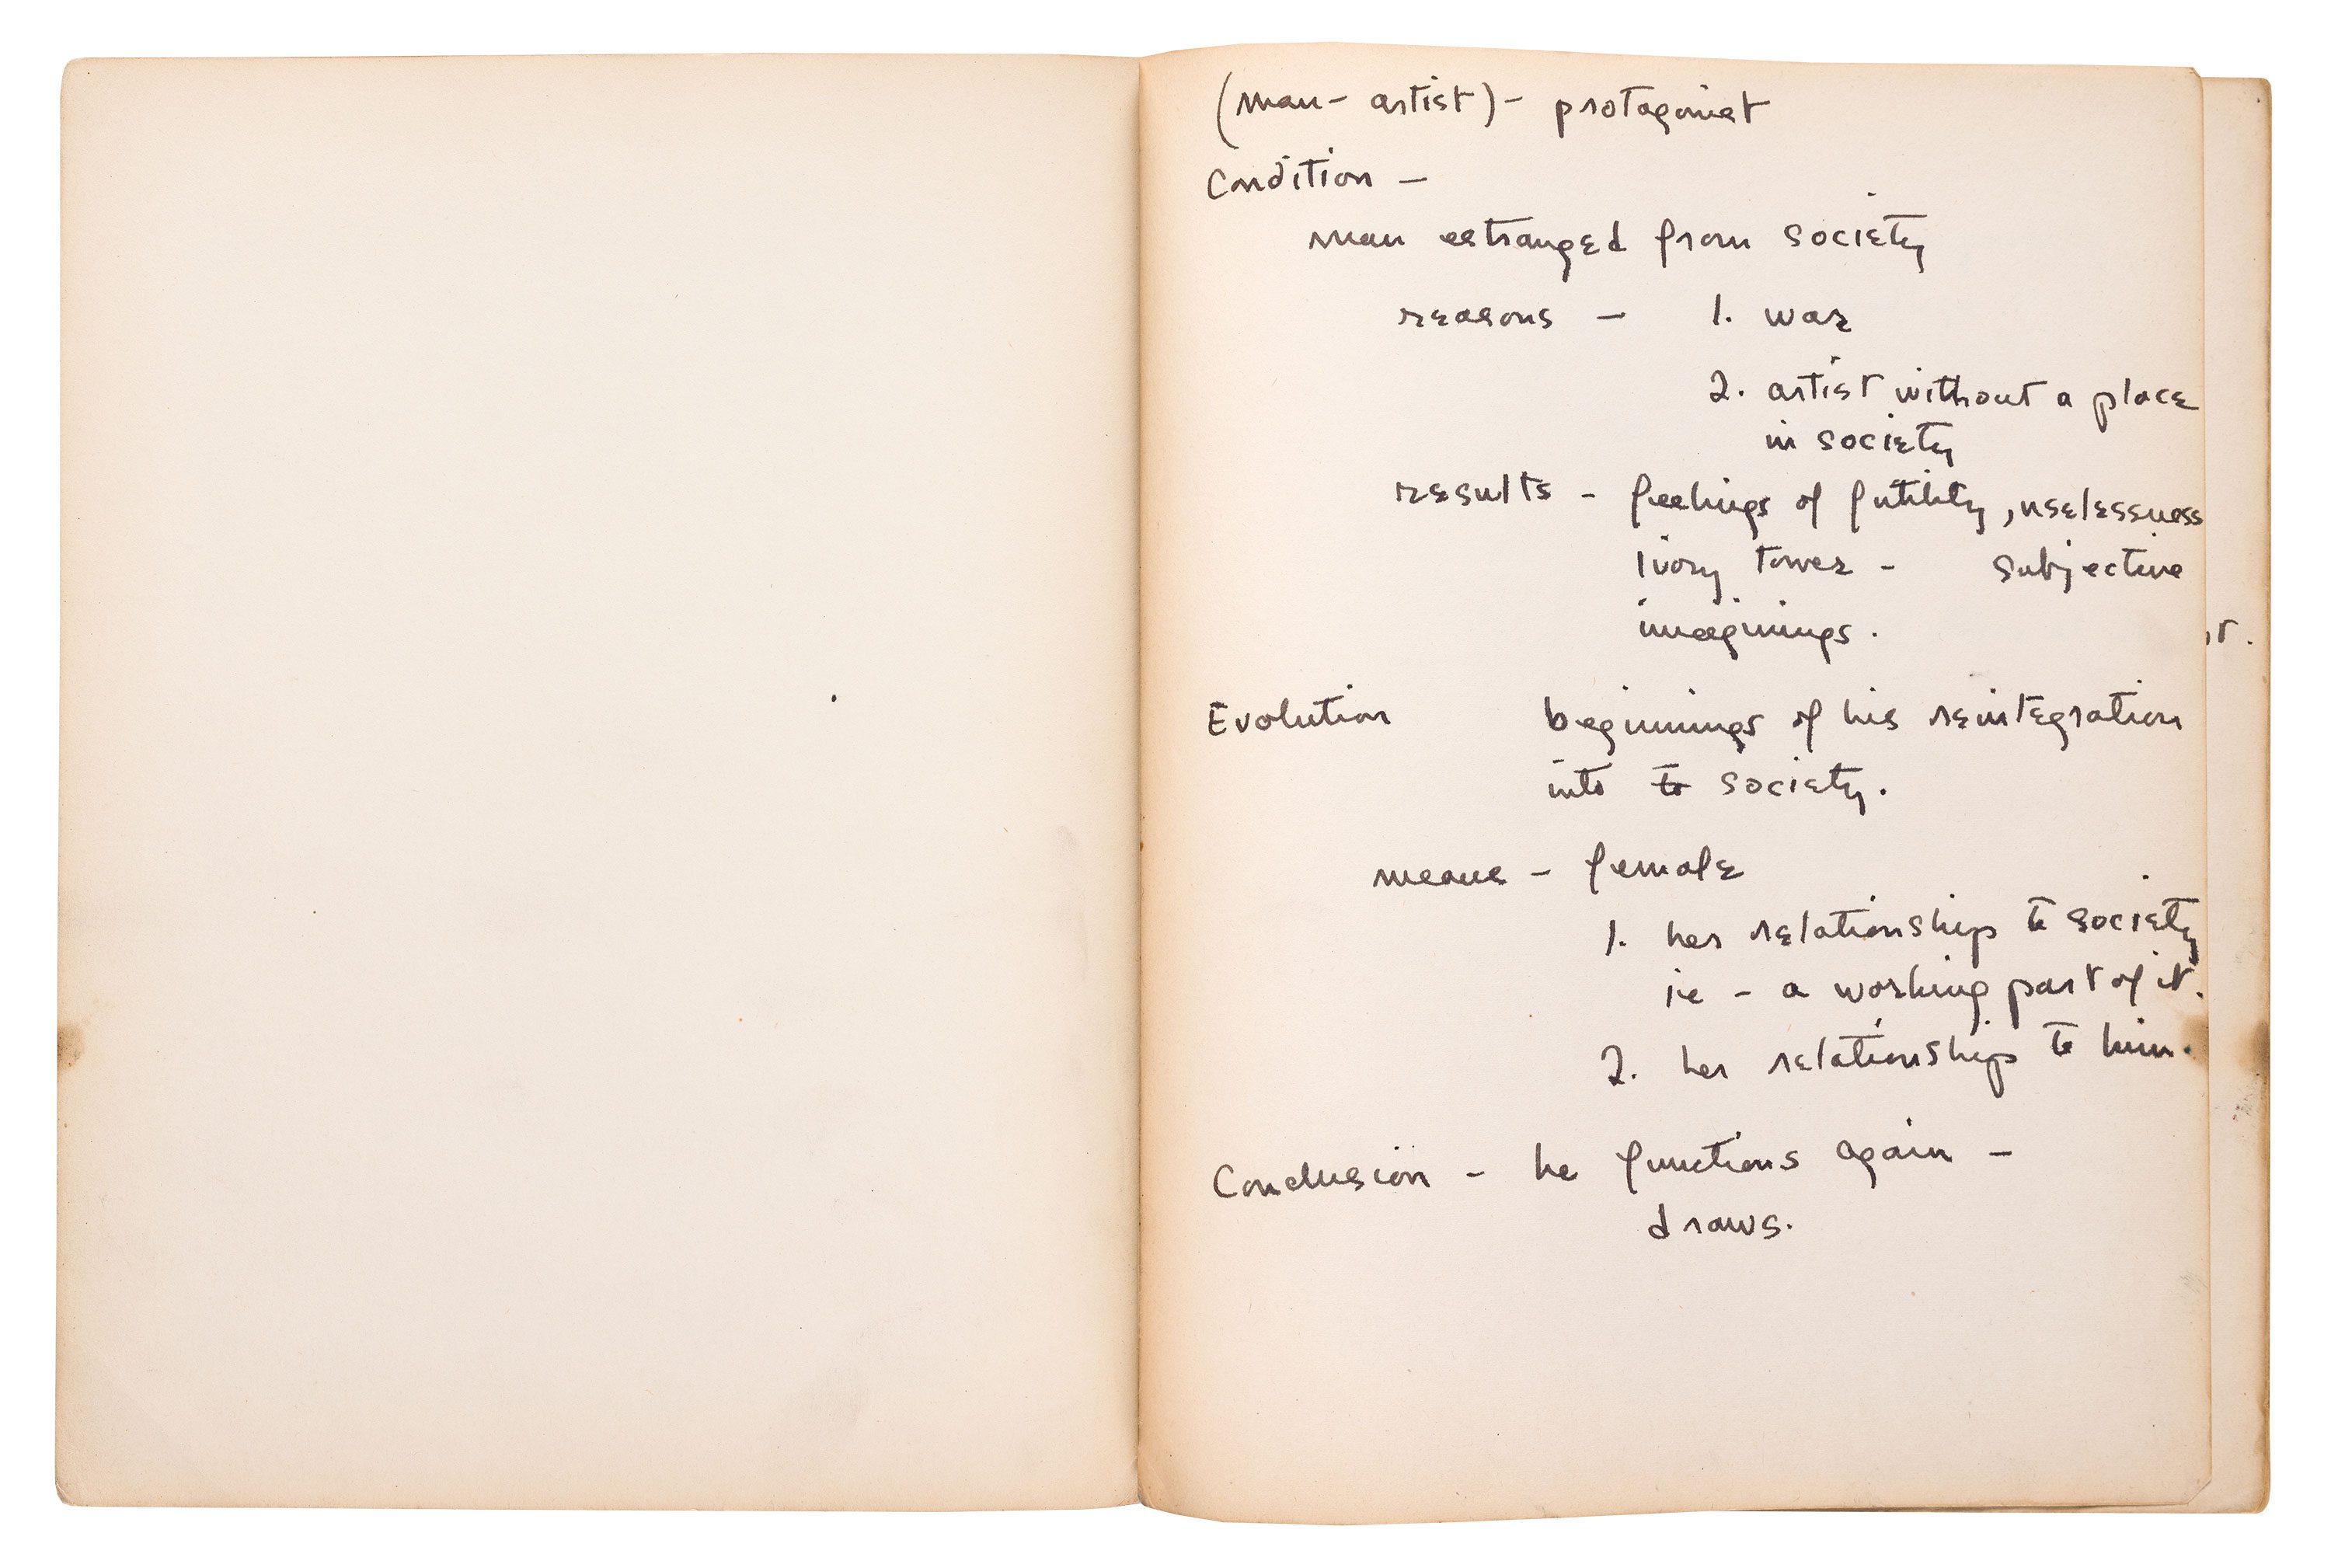 (man - artist) - protagonist
Condition -
man estranged from society
reasons - 1. war
2. artist without a place
in society
results - feelings of futility, uselessness
Ivory tower - subjective
imaginings.
Evolution beginnings of his reintegration
into to society.
means - female
1. her relationship to society
ie - a working part of it.
2. her relationship to him.
Conclusion - he functions again -
draws.